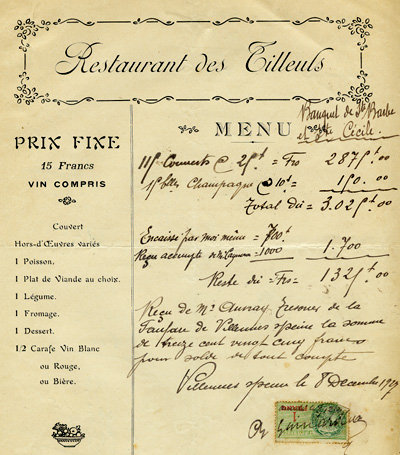 Restaurant des Tilleuls
Banquet de Ste Barbe
et Ste Cécile.
PRIX FIXE
15 Francs
VIN COMPRIS
Couvert
Hors-d'Œuvres variés
1 Poisson.
1 Plat de Viande au choix.
1 Légume.
1 Fromage.
1 Dessert.
1/2 Carafe Vin Blanc
ou Rouge,
ou Bière.
MENU
115 Couverts @ 25f = Frs 2875f.00
15 blles Champagne @ 10f = 150.00
Total dû = 3.025f.00
Encaissé par moi même = 700f
Reçu accompte = 1000 1.700
Reste dû = Frs = 1325f.00
Reçu de Mr Aunay Trésorier de la
Fanfare de Villennes s/seine la somme
de treize cent vingt cinq francs
pour solde de tout compte
Villennes s/seine le 8 Décembre 1927